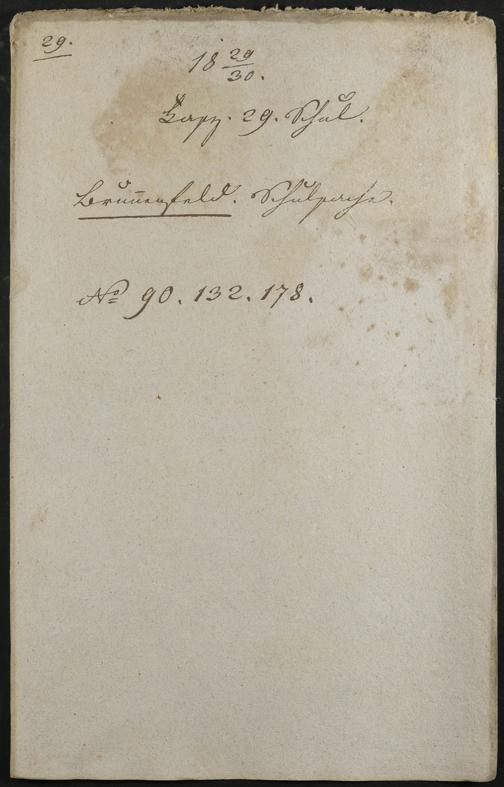 29.
18 29/30.
Fasz. 29. Schul.
Brunnenfeld. Schulsache.
No 90. 132. 178.